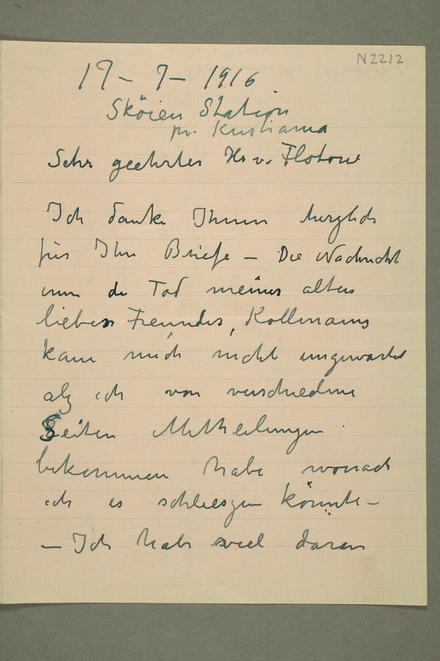 N2212
17 – 7 – 1916
Sköien Station
pr. Kristiania
Sehr geehrter Hr v. Flotow
Ich danke Ihnen herzlich
für Ihr Briefe – Die Nachricht
um de Tod meines alten
lieben Freundes, Kollmanns
kam mich nicht ungewartet
als ich von verschiedene
Seiten Mittheilungen
bekommen habe wonach
ich es schliesgen könnte –
– Ich habe viel daran